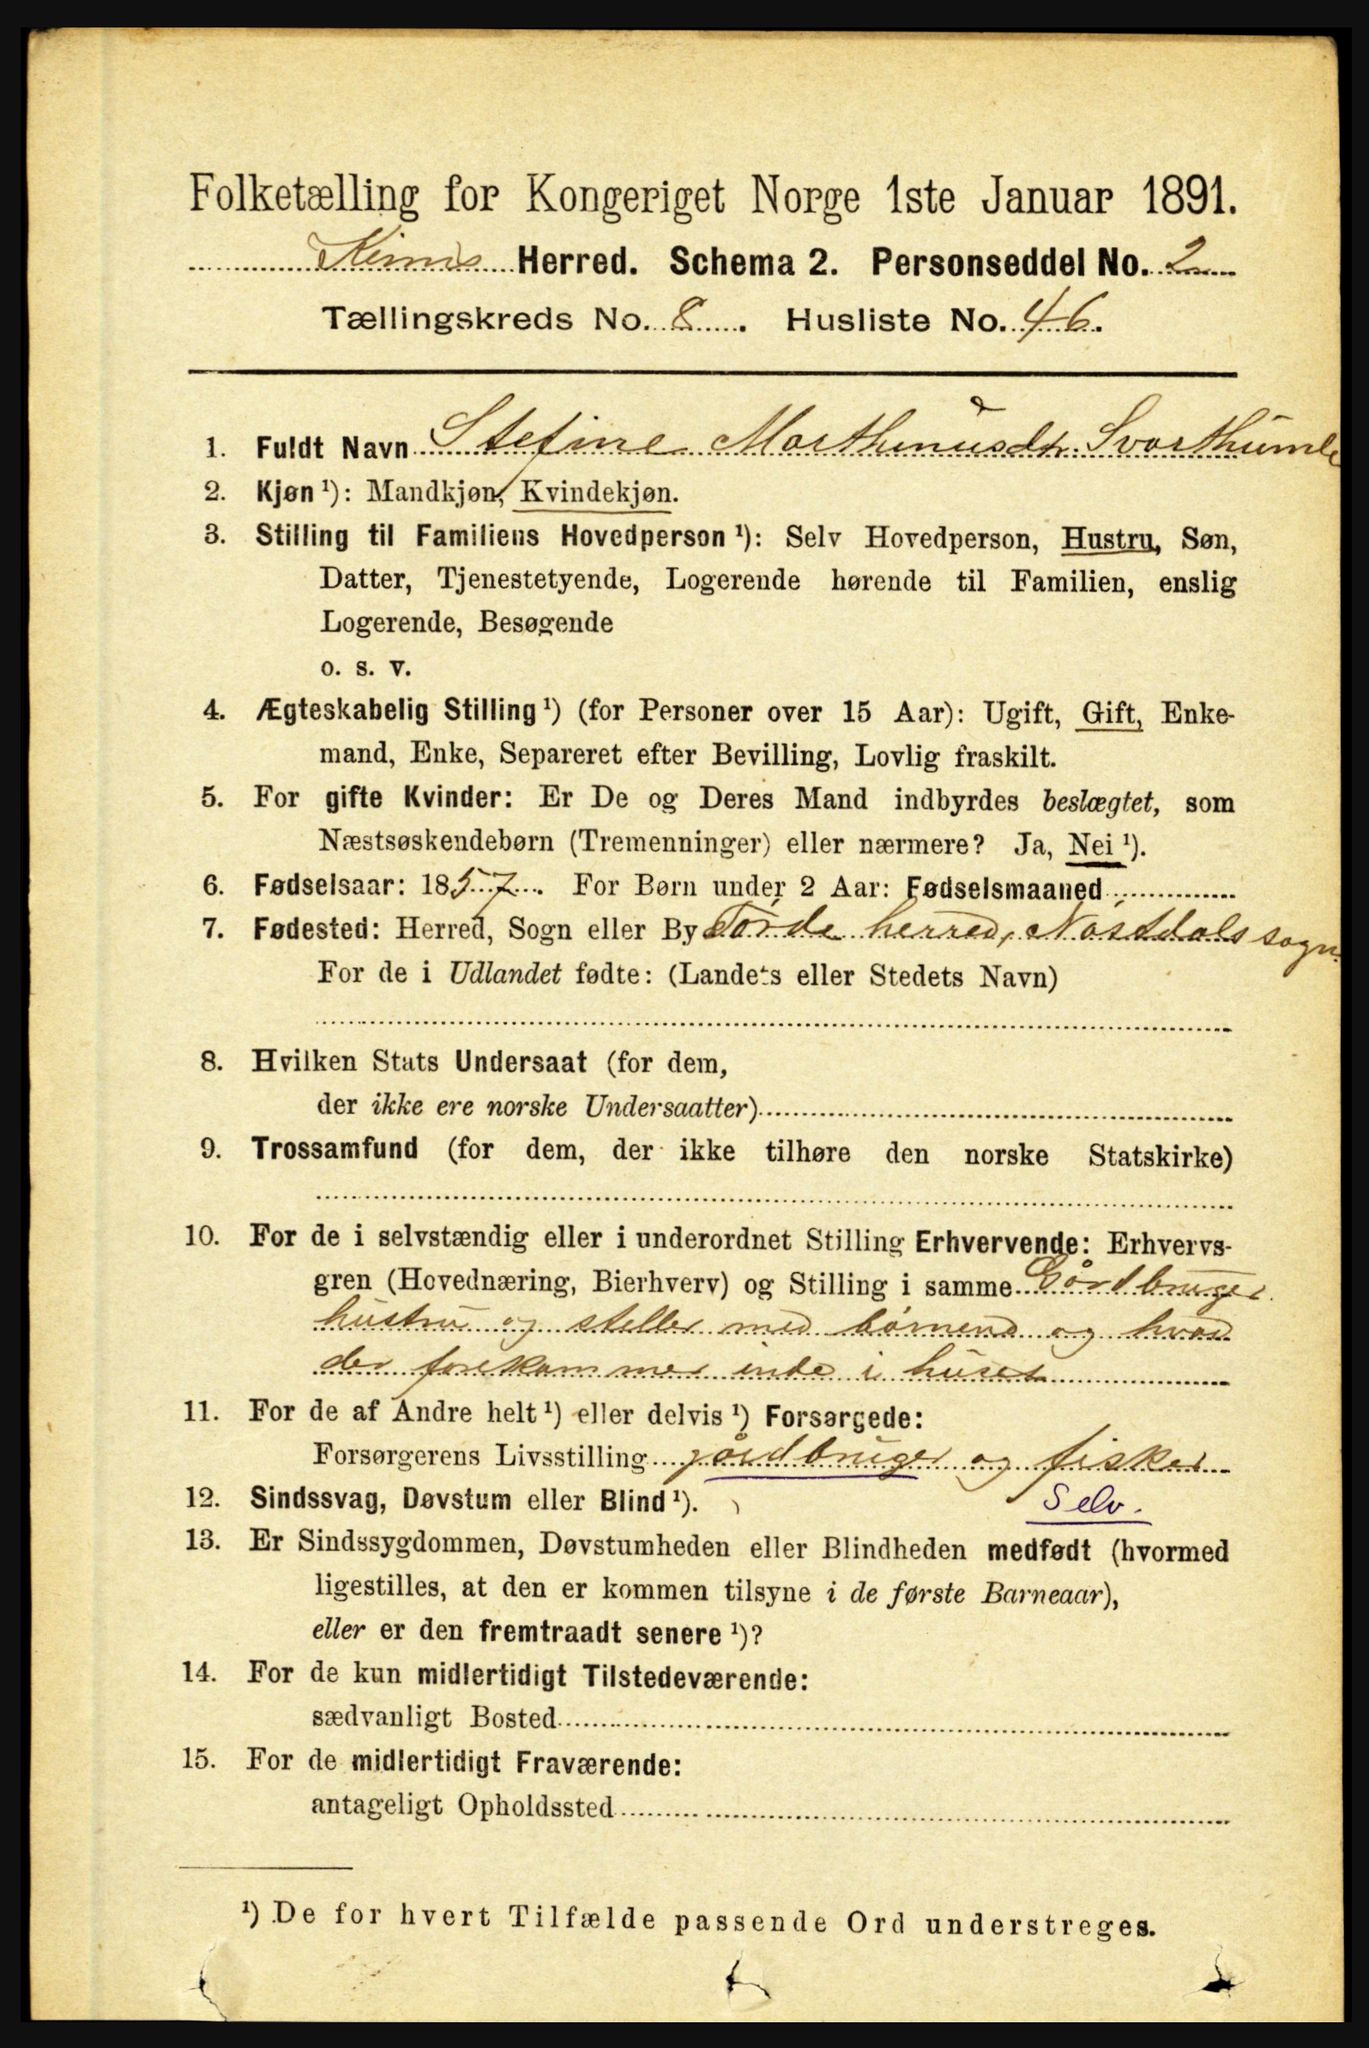 Folketælling for Kongeriget Norge 1ste Januar 1891.
Kinns Herred. Schema 2. Personseddel No. 2
Tællingskreds No. 8. Husliste No. 46.
1. Fuldt Navn Stefine Marthinusdtr. Svarthumle
2. Kjøn ¹): Mandkjøn, Kvindekjøn.
3. Stilling til Familiens Hovedperson ¹): Selv Hovedperson, Hustru, Søn,
Datter, Tjenestetyende, Logerende hørende til Familien, enslig
Logerende, Besøgende
o. s. v.
4. Ægteskabelig Stilling ¹) (for Personer over 15 Aar): Ugift, Gift, Enke-
mand, Enke, Separeret efter Bevilling, Lovlig fraskilt.
5. For gifte Kvinder: Er De og Deres Mand indbyrdes beslægtet, som
Næstsøskendebørn (Tremenninger) eller nærmere? Ja, Nei ¹).
6. Fødselsaar: 1857. For Børn under 2 Aar: Fødselsmaaned
7. Fødested: Herred, Sogn eller By Førde herred, Nøstdals sogn.
For de i Udlandet fødte: (Landets eller Stedets Navn)
8. Hvilken Stats Undersaat (for dem,
der ikke ere norske Undersaatter)
9. Trossamfund (for dem, der ikke tilhøre den norske Statskirke)
10. For de i selvstændig eller i underordnet Stilling Erhvervende: Erhvervs-
gren (Hovednæring, Bierhverv) og Stilling i samme Gårdbruger
hustru og steller med børnene og hvad
der forekommer inde i huset
11. For de af Andre helt ¹) eller delvis ¹) Forsørgede:
Forsørgerens Livsstilling gårdbruger og fisker
12. Sindssvag, Døvstum eller Blind ¹). Selv.
13. Er Sindssygdommen, Døvstumheden eller Blindheden medfødt (hvormed
ligestilles, at den er kommen tilsyne i de første Barneaar),
eller er den fremtraadt senere ¹)?
14. For de kun midlertidigt Tilstedeværende:
sædvanligt Bosted
15. For de midlertidigt Fraværende:
antageligt Opholdssted
¹) De for hvert Tilfælde passende Ord understreges.